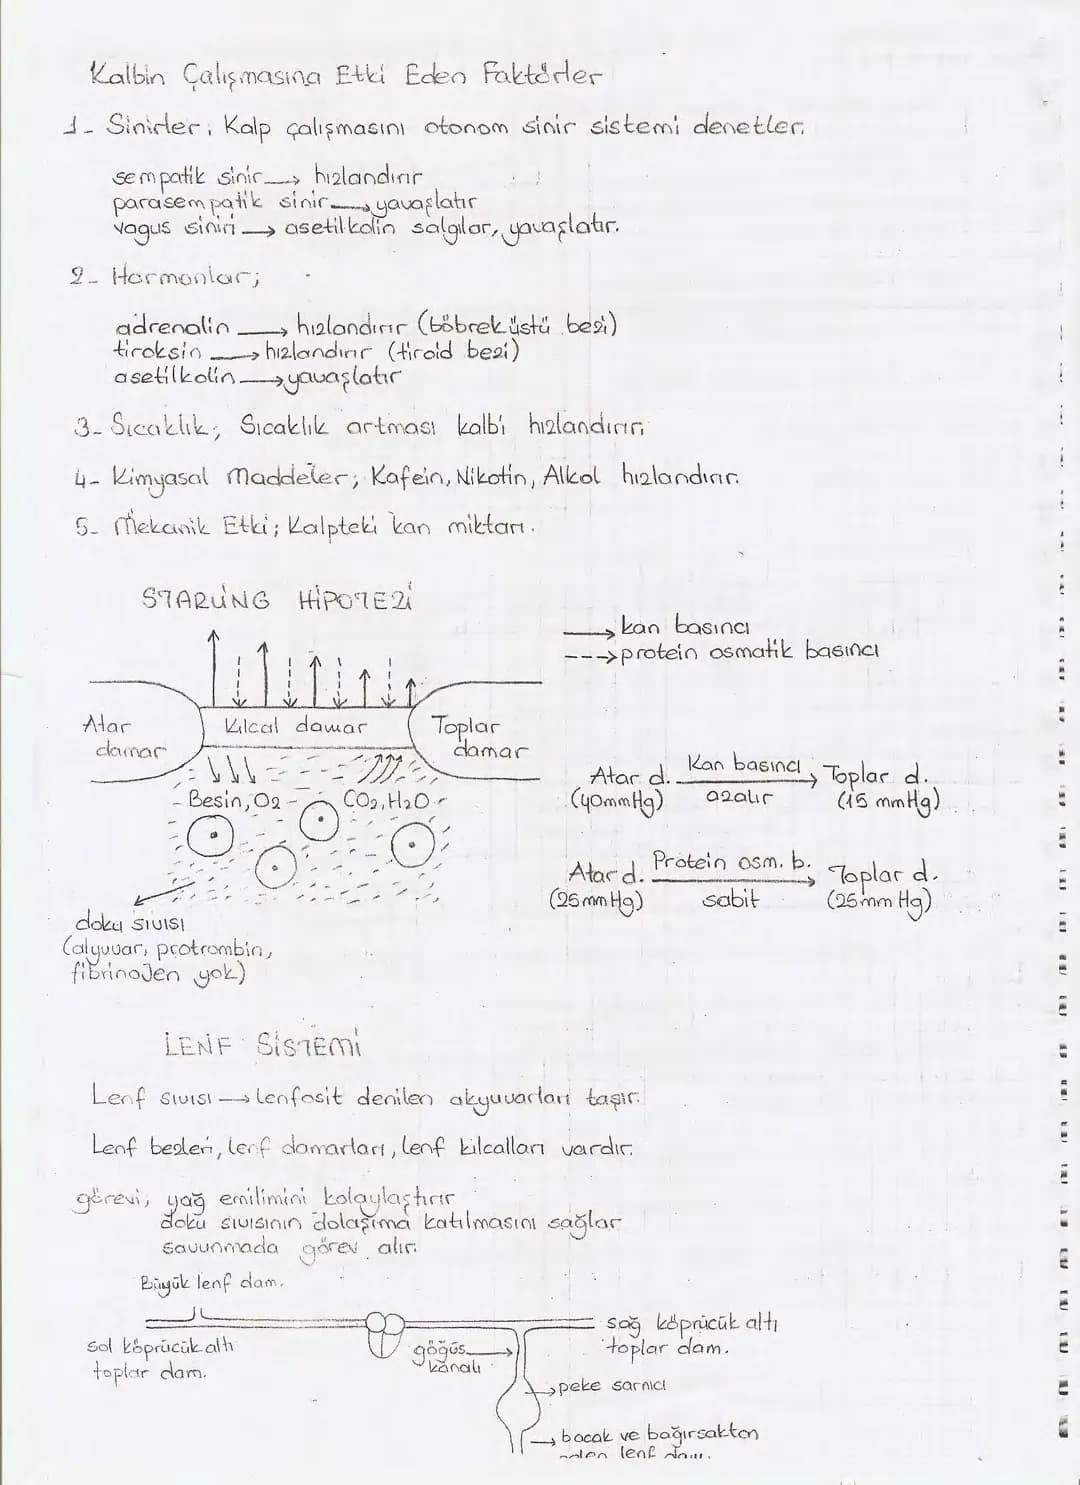 Kalbin Çalışmasına Etki Eden Faktörler
1- Sinirler; Kalp çalışmasını otonom sinir sistemi denetler.
sempatik sinir → hızlandırır
parasempatik sinir → yavaşlatır
vagus siniri → asetilkolin salgılar, yavaşlatır.
2- Hormonlar;
adrenalin → hızlandırır (böbrek üstü bezi)
tiroksin → hızlandırır (tiroid bezi)
asetilkolin → yavaşlatır
3- Sıcaklık; Sıcaklık artması kalbi hızlandırır.
4- Kimyasal Maddeler; Kafein, Nikotin, Alkol hızlandırır.
5- Mekanik Etki; Kalpteki kan miktarı.
STARLİNG HİPOTEZİ
→ kan basıncı
---> protein osmatik basıncı
Atar damar
Kılcal damar
Toplar damar
Besin, O2
CO2, H2O
Atar d. Kan basıncı → Toplar d.
(40mmHg) azalır (15 mmHg)
Atar d. Protein osm. b. → Toplar d.
(25mmHg) sabit (25mmHg)
doku sıvısı
(alyuvar, protrombin,
fibrinojen yok)
LENF SİSTEMİ
Lenf sıvısı → lenfosit denilen akyuvarları taşır.
Lenf bezleri, lenf damarları, lenf kılcalları vardır.
görevi, yağ emilimini kolaylaştırır
doku sıvısının dolaşıma katılmasını sağlar
savunmada görev alır.
Büyük lenf dam.
sol köprücük altı
toplar dam.
göğüs
kanalı
sağ köprücük altı
toplar dam.
→ peke sarnıcı
→ bacak ve bağırsaktan
gelen lenf dam.